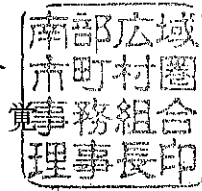 南部広域
市町村圏
覚事務組合
理事長印